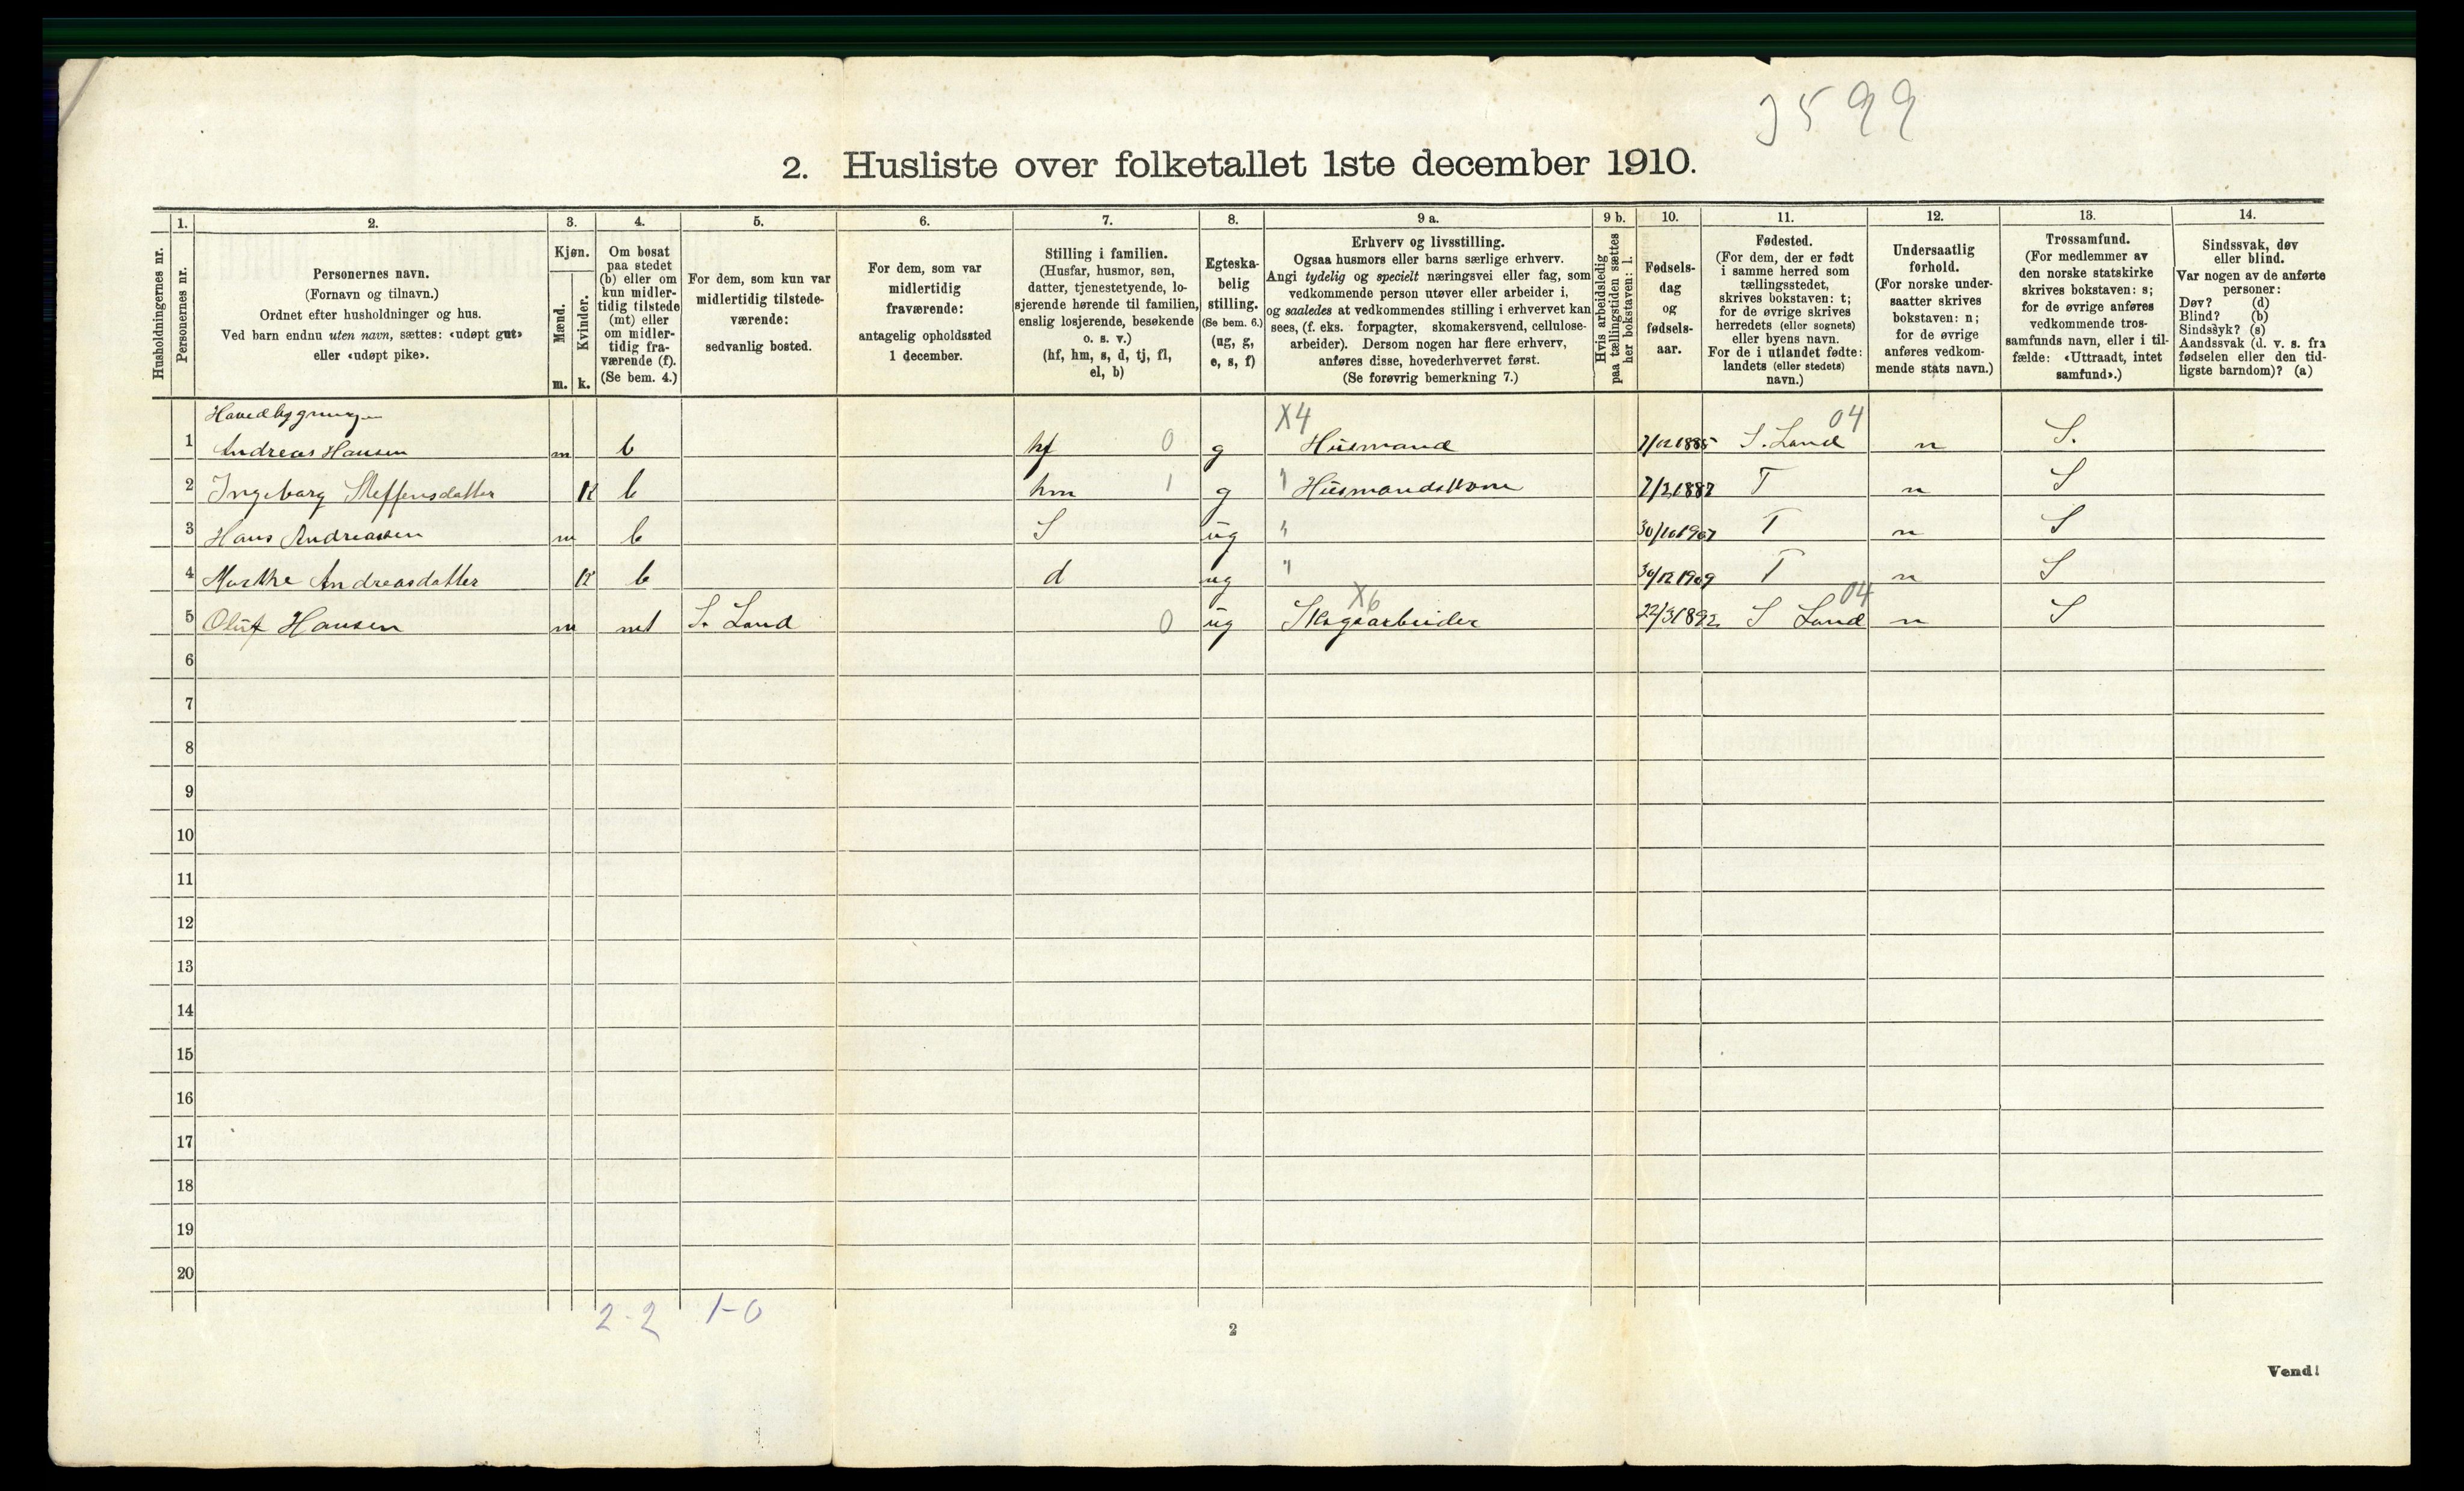 J599
2. Husliste over folketallet 1ste december 1910.
Husholdningernes nr.
1.
Personernes nr.
2.
Personernes navn.
(Fornavn og tilnavn.)
Ordnet efter husholdninger og hus.
Ved barn endnu uten navn, sættes: «udøpt gut»
eller «udøpt pike».
3.
Kjøn.
Mænd.
Kvinder.
m. k.
4.
Om bosat
paa stedet
(b) eller om
kun midler-
tidig tilstede
(mt) eller
om midler-
tidig fra-
værende (f).
(Se bem. 4.)
5.
For dem, som kun var
midlertidig tilstede-
værende:
sedvanlig bosted.
6.
For dem, som var
midlertidig
fraværende:
antagelig opholdssted
1 december.
7.
Stilling i familien.
(Husfar, husmor, søn,
datter, tjenestetyende, lo-
sjerende hørende til familien,
enslig losjerende, besøkende
o. s. v.)
(hf, hm, s, d, tj, fl,
el, b)
8.
Egteska-
belig
stilling.
(Se bem. 6.)
(ug, g,
e, s, f)
9 a.
Erhverv og livsstilling.
Ogsaa husmors eller barns særlige erhverv.
Angi tydelig og specielt næringsvei eller fag, som
vedkommende person utøver eller arbeider i,
og saaledes at vedkommendes stilling i erhvervet kan
sees, (f. eks. forpagter, skomakersvend, cellulose-
arbeider). Dersom nogen har flere erhverv,
anføres disse, hovederhvervet først.
(Se forøvrig bemerkning 7.)
9 b.
Hvis arbeidsledig
paa tællingstiden sættes
her bokstaven: l.
10.
Fødsels-
dag
og
fødsels-
aar.
11.
Fødested.
(For dem, der er født
i samme herred som
tællingsstedet,
skrives bokstaven: t;
for de øvrige skrives
herredets (eller sognets)
eller byens navn.
For de i utlandet fødte:
landets (eller stedets)
navn.)
12.
Undersaatlig
forhold.
(For norske under-
saatter skrives
bokstaven: n;
for de øvrige
anføres vedkom-
mende stats navn.)
13.
Trossamfund.
(For medlemmer av
den norske statskirke
skrives bokstaven: s;
for de øvrige anføres
vedkommende tros-
samfunds navn, eller i til-
fælde: «Uttraadt, intet
samfund».)
14.
Sindssvak, døv
eller blind.
Var nogen av de anførte
personer:
Døv? (d)
Blind? (b)
Sindssyk? (s)
Aandssvak (d. v. s. fra
fødselen eller den tid-
ligste barndom)? (a)
Hovedbygningen X4 04
1 Andreas Hansen m b hf 0 g Husmand 7/12 1885 S. Land n S.
2 Ingeborg Steffensdatter k b hm 1 g " Husmandskone T n S
3 Hans Andreassen m b S ug " 30/10 1907 T n S
4 Marthe Andreasdatter k b d ug " 30/12 1909 T n S
X6 04
5 Oluf Hansen m mt S. Land 0 ug Skogsarbeider 22/3 1892 S Land n S
6
7
8
9
10
11
12
13
14
15
16
17
18
19
20
2-2 1-0
2
Vend!